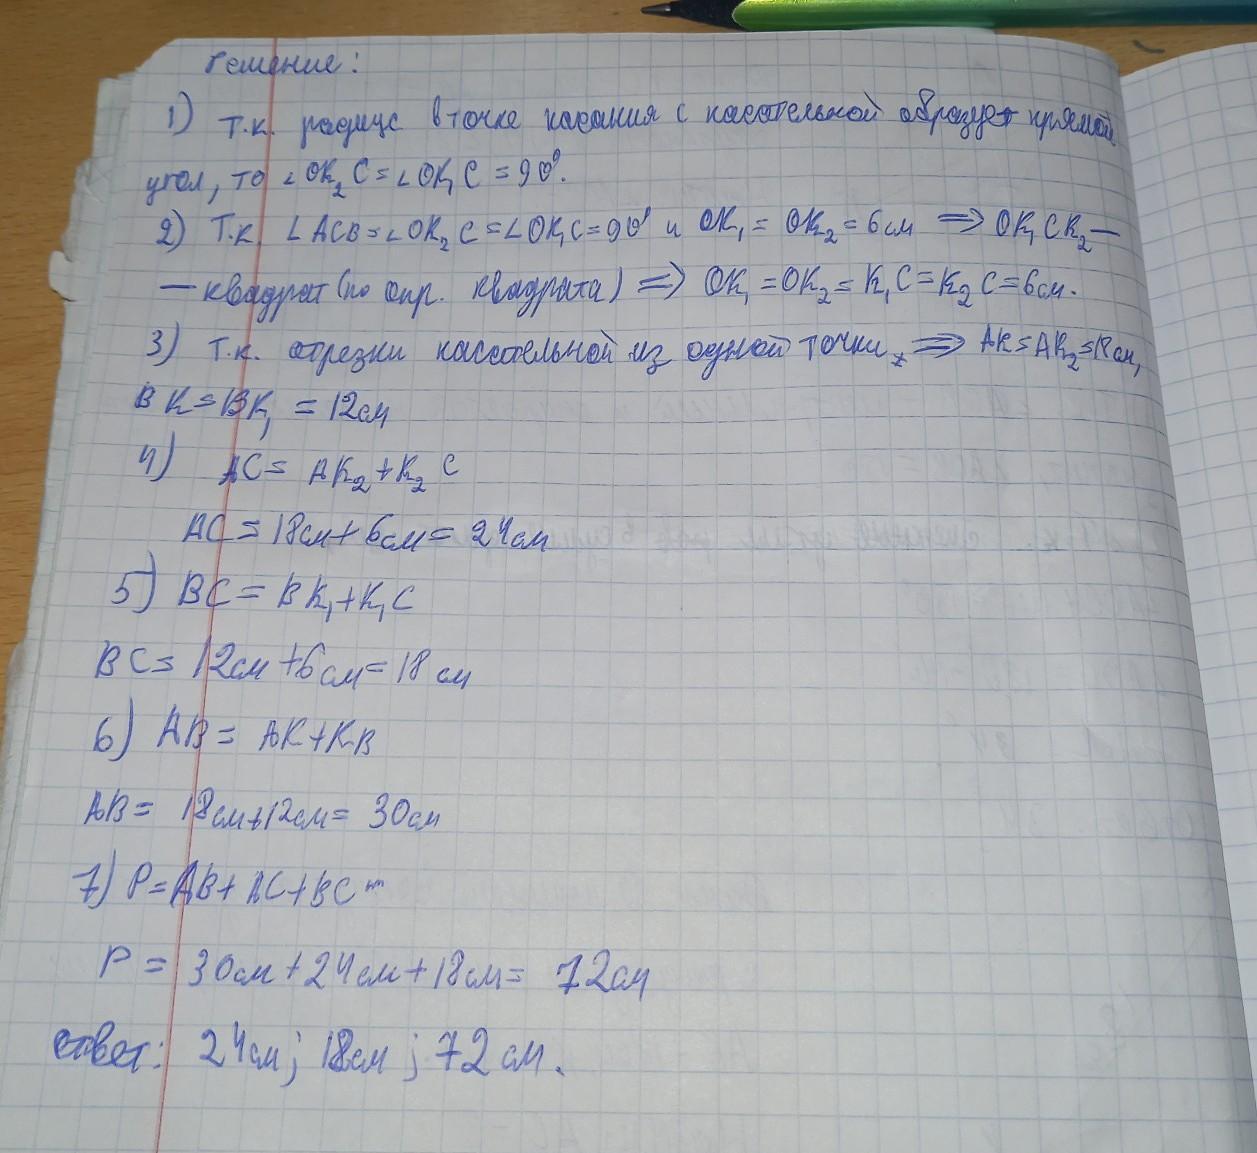 Решение:
1) Т.к. радиус в точке касания с касательной образует прямой
угол, то ∠OK₂C = ∠OK₁C = 90°.
2) Т.к. ∠ACB = ∠OK₂C = ∠OK₁C = 90° и OK₁ = OK₂ = 6см ⇒ OK₁CK₂ —
— квадрат (по опр. квадрата) ⇒ OK₁ = OK₂ = K₁C = K₂C = 6см.
3) Т.к. отрезки касательной из одной точки, ⇒ AK = AK₂ = 18см,
BK = BK₁ = 12см
4) AC = AK₂ + K₂C
AC = 18см + 6см = 24см
5) BC = BK₁ + K₁C
BC = 12см + 6см = 18см
6) AB = AK + KB
AB = 18см + 12см = 30см
7) P = AB + AC + BC
P = 30см + 24см + 18см = 72см
Ответ: 24см; 18см; 72см.